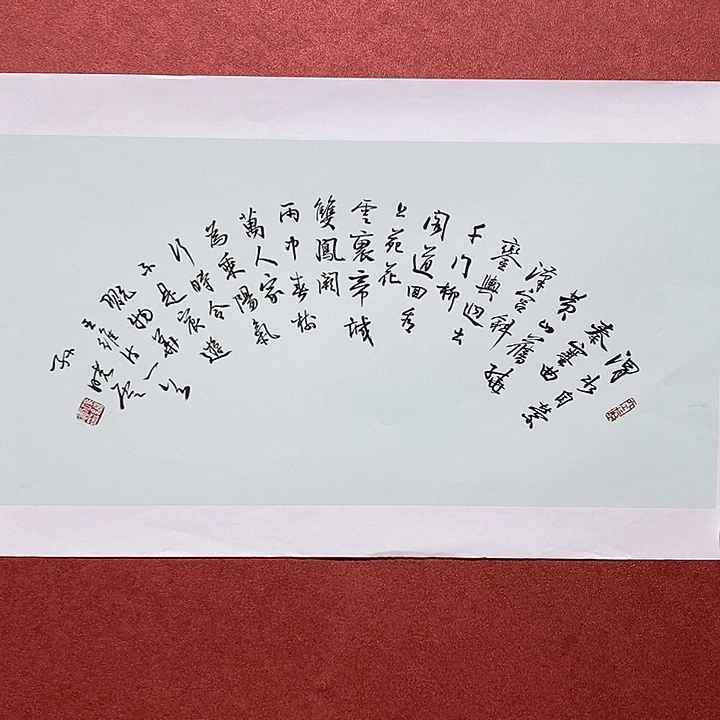 渭水自縈
秦塞曲
黃山舊繞
漢宮斜
鑾輿迥出
千門柳
閣道回看
上苑花
雲裏帝城
雙鳳闕
雨中春樹
萬人家
為乘陽氣
行時令
不是宸遊
翫物華
王維詩一首
孙曉雲